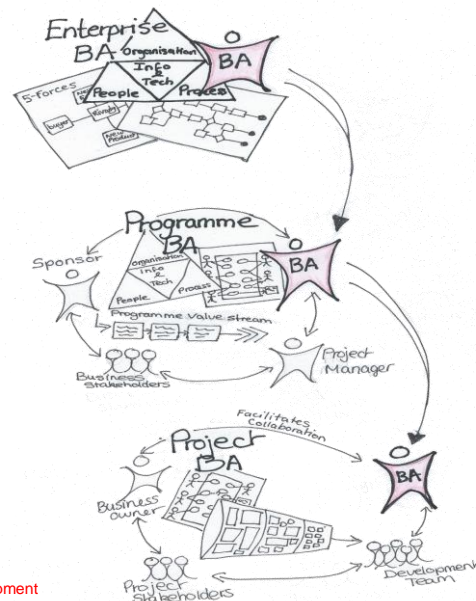 Enterprise
BA
Organisation
BA
Info
&
Tech
People
Process
5-Forces
buyer
Rivalry
New
Product
Programme
BA
Sponsor
Organisation
Info
&
Tech
People
Process
BA
Programme Value stream
Business
Stakeholders
Project
Manager
Facilitates
Collaboration
Project
BA
BA
Business
Owner
Project
Stakeholders
Development
Team
oment